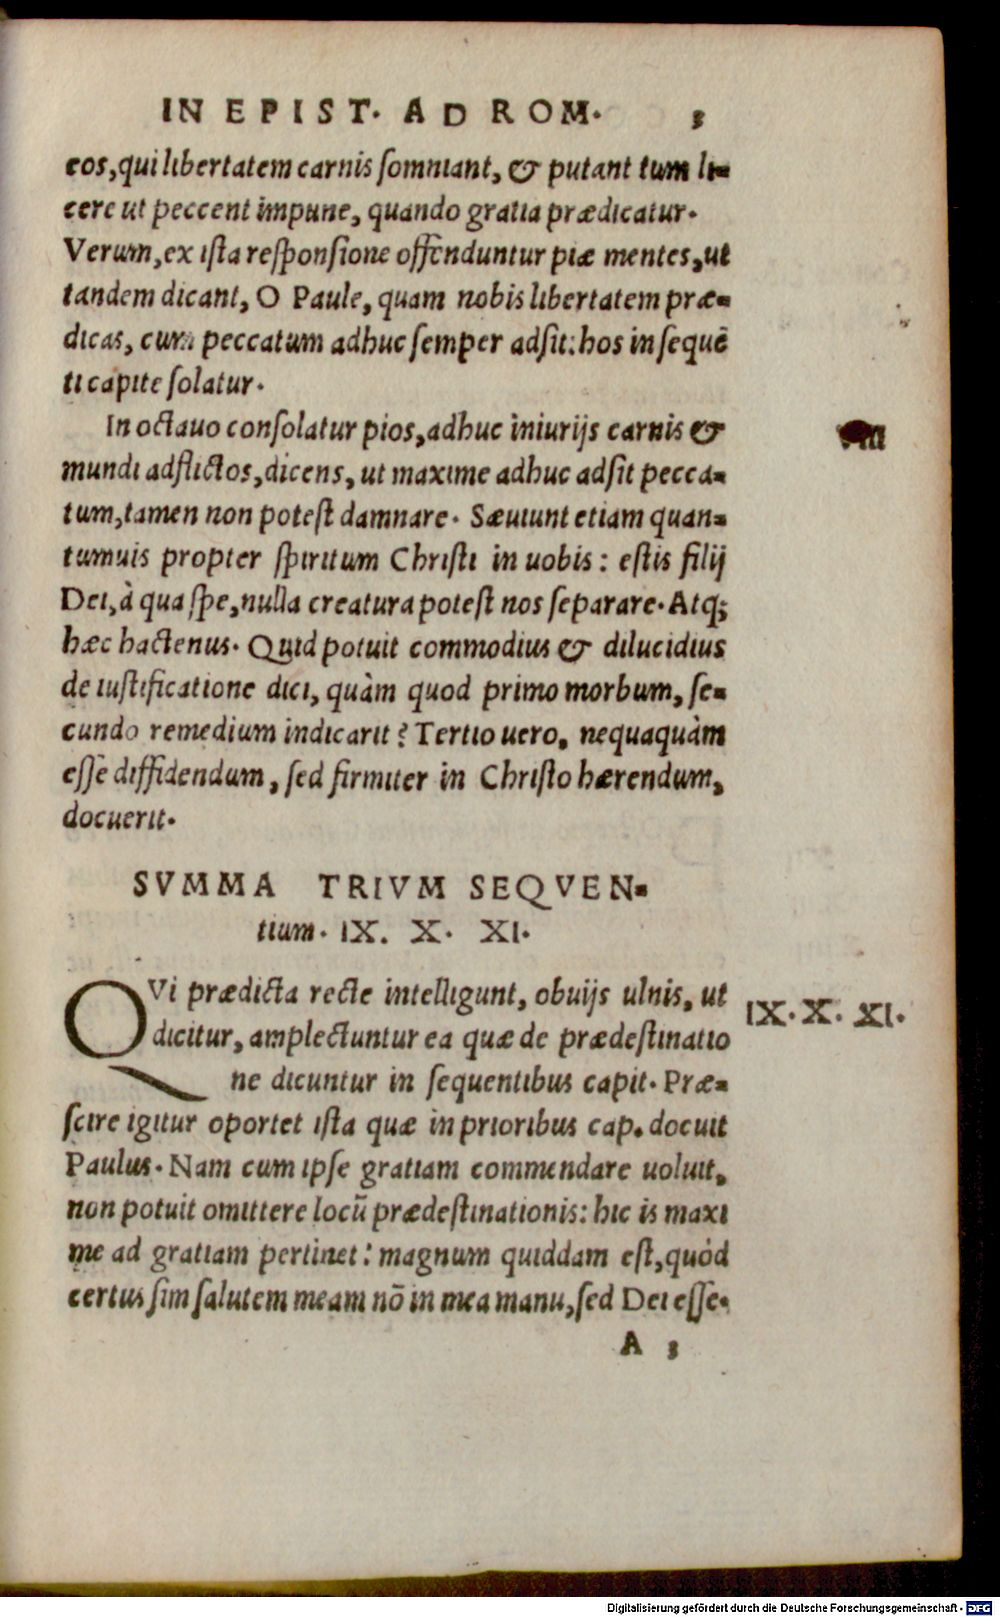 IN EPIST. AD ROM. 3
eos, qui libertatem carnis ſomniant, & putant tum li-
cere ut peccent impune, quando gratia prædicatur.
Verum, ex iſta reſponſione offenduntur piæ mentes, ut
tandem dicant, O Paule, quam nobis libertatem præ-
dicas, cum peccatum adhuc ſemper adſit: hos in ſequẽ
ti capite ſolatur.
In octauo conſolatur pios, adhuc iniurijs carnis &
VIII
mundi adflictos, dicens, ut maxime adhuc adſit pecca-
tum, tamen non poteſt damnare. Sæuiunt etiam quan-
tumuis propter ſpiritum Chriſti in uobis: eſtis filij
Dei, à qua ſpe, nulla creatura poteſt nos ſeparare. Atq;
hæc hactenus. Quid potuit commodius & dilucidius
de iuſtificatione dici, quàm quod primo morbum, ſe-
cundo remedium indicarit? Tertio uero, nequaquàm
eſſe diffidendum, ſed firmiter in Chriſto hærendum,
docuerit.
SVMMA TRIVM SEQVEN-
tium. IX. X. XI.
QVi prædicta recte intelligunt, obuijs ulnis, ut
IX. X. XI.
dicitur, amplectuntur ea quæ de prædeſtinatio
ne dicuntur in ſequentibus capit. Præ-
ſcire igitur oportet iſta quæ in prioribus cap. docuit
Paulus. Nam cum ipſe gratiam commendare uoluit,
non potuit omittere locũ prædeſtinationis: hic is maxi
me ad gratiam pertinet: magnum quiddam eſt, quòd
certus ſim ſalutem meam nõ in mea manu, ſed Dei eſſe.
A 3
Digitalisierung gefördert durch die Deutsche Forschungsgemeinschaft - DFG